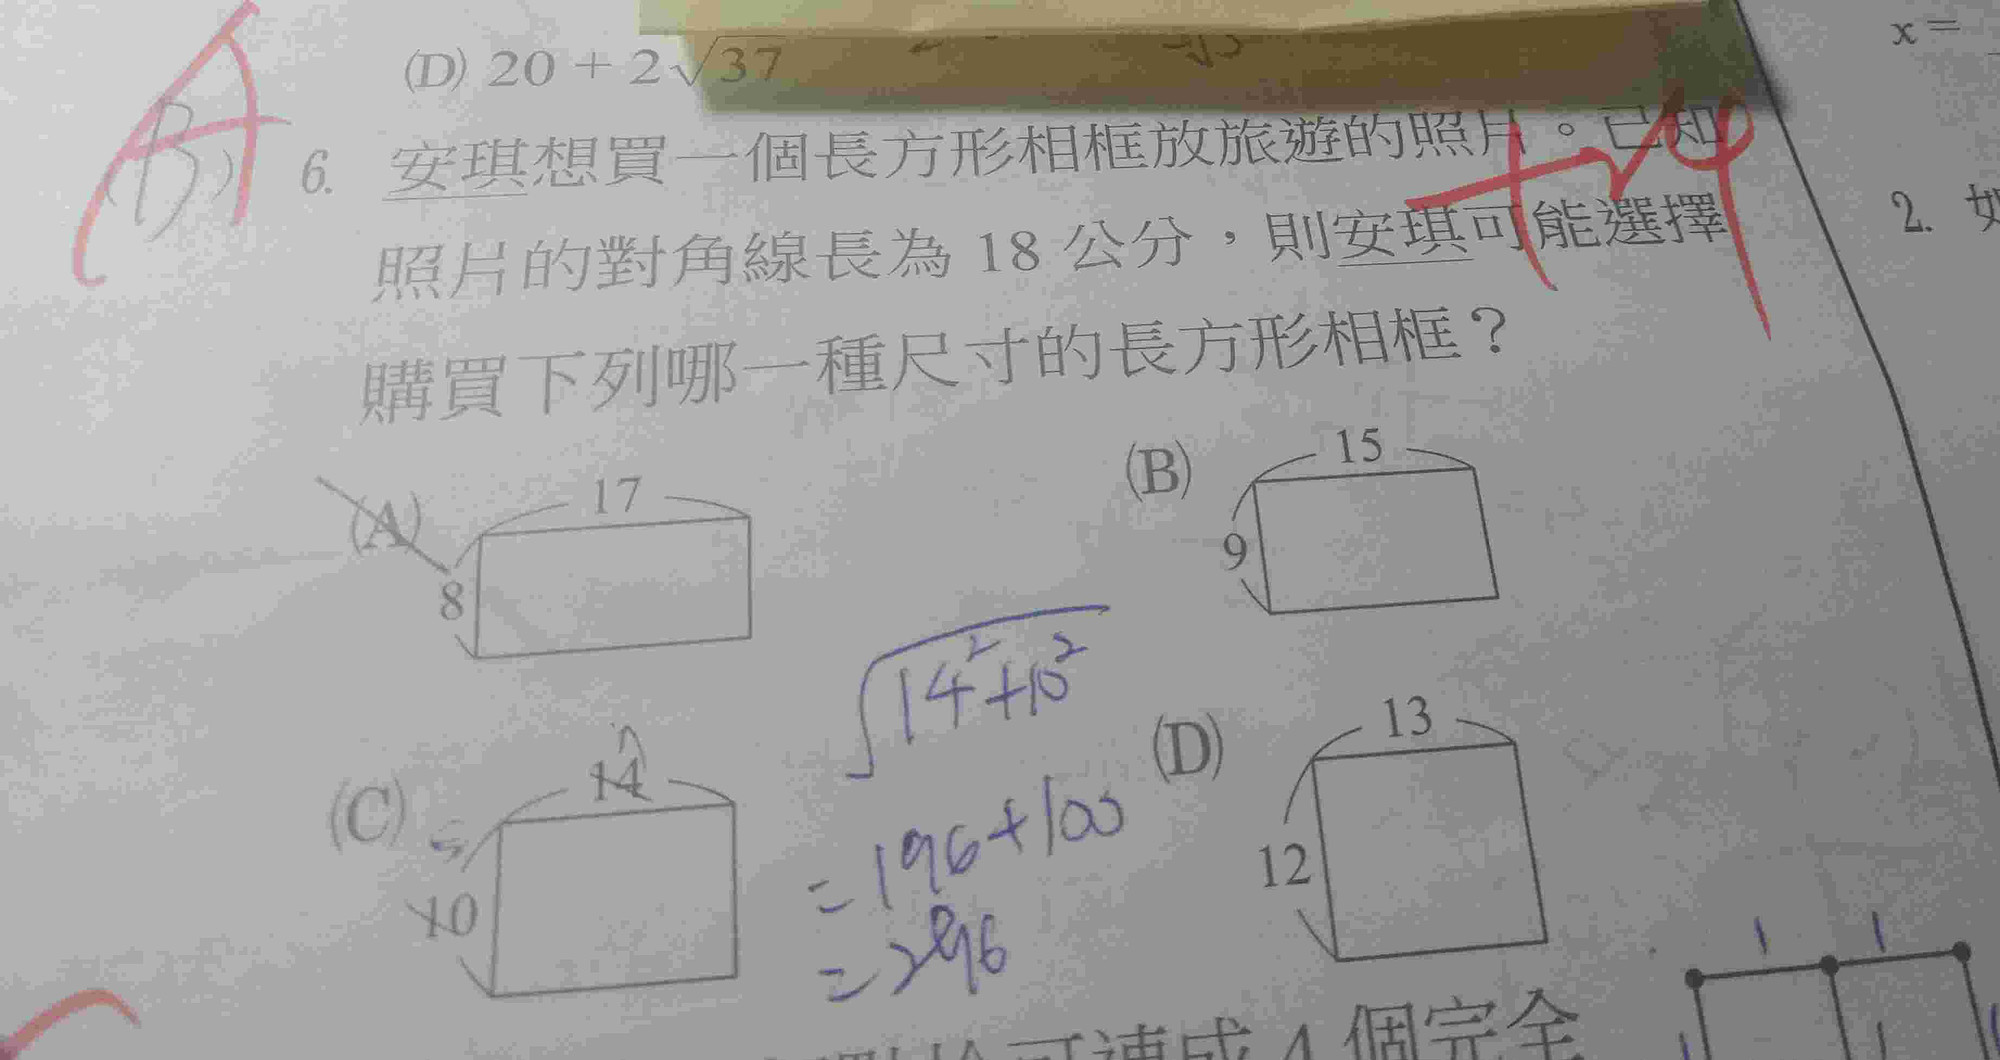 x =
(D) 20 + 2√37
(B) A
6. 安琪想買一個長方形相框放旅遊的照片。已知
照片的對角線長為 18 公分，則安琪可能選擇
購買下列哪一種尺寸的長方形相框？
2. 如
(A) 17
8
(B) 15
9
√14²+10²
=196+100
=296
(C) 14
7
5
10
(D) 13
12
1 1
可連成 4 個完全